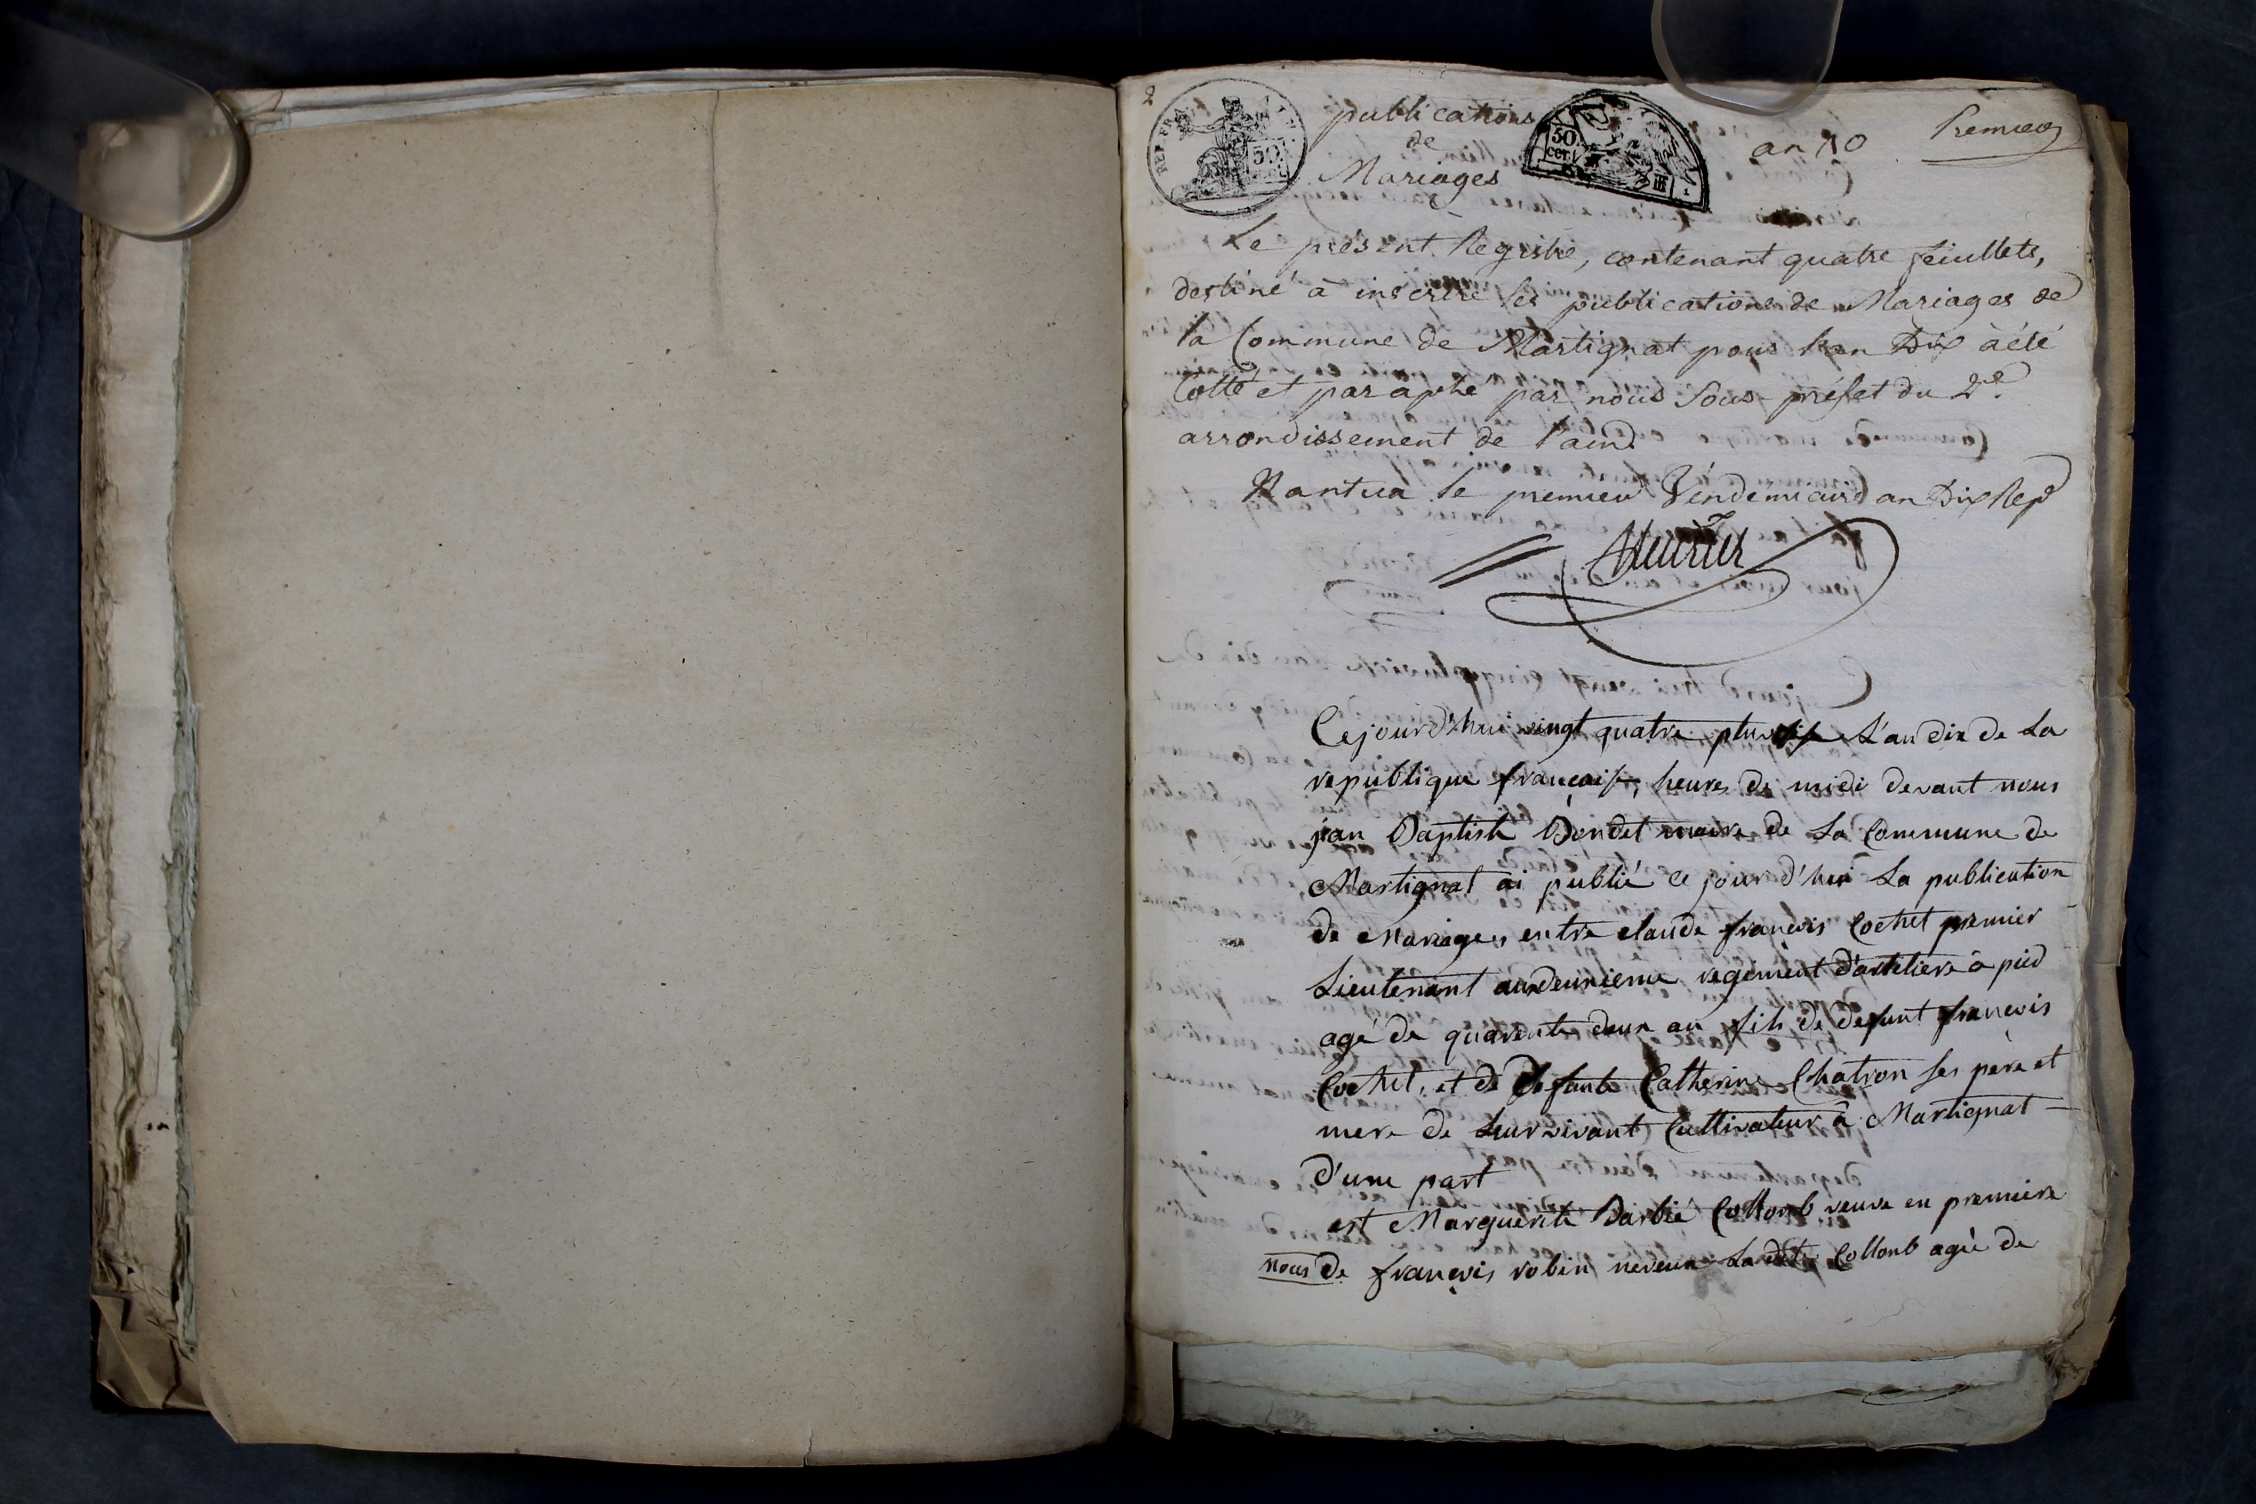 2
publications
de
Mariages
REP. FRA.
50
50
cen.
an 10
Premier
Le présent Registre, contenant quatre feiullets,
destiné à inscrire les publications de Mariages de
la Commune de Martignat pour l'an Dix à été
Cotté et paraphé par nous Sous-préfet du 2e.
arrondissement de l'ain.
Nantua le premier Vendemiaire an Dix Rep
Cejourd'hui vingt quatre pluviose L'an dix de La
republique françaisse, heure de midi devant nous
jean Baptiste Bondet maire de La Commune de
Martignat ai publié ce jour d'hui La publication
de Mariages entre claude françois Cochet premier
Lieutenant audeuxieme regement d'arteliere à pied
agé de quarente deux an fils de defunt françois
Cochet, et de defunte Catherine Chatron ses père et
mere de Leur vivant Cultivateur à Martignat
D'une part
est Marguerite Barbié Collomb veuve en premiere
nous de françois robin neveux La dite Collomb agé de